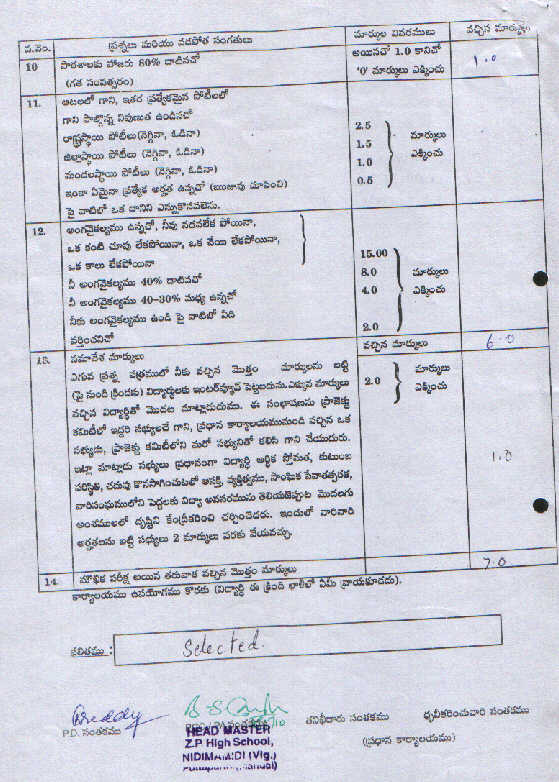 ప.నెం. ప్రశ్నలు మరియు చేరపోత సంగతులు మార్కుల వివరములు వచ్చిన మార్కులు
10 పాఠశాలకు హాజరు 80% దాటినచో అయినచో 1.0 కానిచో 1.0
(గత సంవత్సరం) '0' మార్కులు ఎక్కించు
11. ఆటలలో గాని, ఇతర ప్రత్యేకమైన పోటీలలో
గాని పాల్గొన్న నిపుణత ఉండినచో
రాష్ట్రస్థాయి పోటీలు(నెగ్గినా, ఓడినా) 2.5 మార్కులు
జిల్లాస్థాయి పోటీలు (నెగ్గినా, ఓడినా) 1.5 ఎక్కించు
మండలస్థాయి పోటీలు (నెగ్గినా, ఓడినా) 1.0
ఇంకా ఏమైనా ప్రత్యేక అర్హత ఉన్నచో (ఋజువు చూపించి) 0.5
పై వాటిలో ఒక దానిని ఎన్నుకొనవలెను.
12. అంగవైకల్యము ఉన్నచో, నీవు నడవలేక పోయినా,
ఒక కంటి చూపు లేకపోయినా, ఒక చేయి లేకపోయినా, 15.00
ఒక కాలు లేకపోయినా 8.0 మార్కులు
నీ అంగవైకల్యము 40% దాటినచో 4.0 ఎక్కించు
నీ అంగవైకల్యము 40-30% మధ్య ఉన్నచో
నీకు అంగవైకల్యము ఉండి పై వాటిలో ఏది 2.0
వర్తించనిచో వచ్చిన మార్కులు 6.0
13. సమావేశ మార్కులు
ఎగువ ప్రశ్న పత్రములో నీకు వచ్చిన మొత్తం మార్కులను బట్టి 2.0 మార్కులు
(పై నుండి క్రిందకు) విద్యార్థులకు ఇంటర్వ్యూచే పెట్టబడును.ఎక్కువ మార్కులు ఎక్కించు
వచ్చిన విద్యార్థితో మొదట మాట్లాడుదుము. ఈ సంభాషణను ప్రాజెక్టు
కమిటీలో ఇద్దరి సభ్యులచే గాని, ప్రధాన కార్యాలయమునుండి వచ్చిన ఒక
సభ్యుడు, ప్రాజెక్టు కమిటీలోని మరో సభ్యునితో కలిసి గాని చేయుదురు.
ఇట్లా మాట్లాడు సభ్యులు ప్రధానంగా విద్యార్థి ఆర్థిక స్తోమత, కుటుంబ 1.0
పరిస్థితి, చదువు కొనసాగించుటలో ఆసక్తి, వ్యక్తిత్వము, సాంఘిక సేవాతత్పరత,
వారిసంఘములోని పెద్దలకు విద్యా అవసరమును తెలియజెప్పుట మొదలగు
అంశములలో దృష్టిని కేంద్రీకరించి చర్చించెదరు. ఇందులో వారివారి
అర్హతలను బట్టి సభ్యులు 2 మార్కులు వరకు వేయవచ్చు.
14. మౌఖిక పరీక్ష అయిన తరువాత వచ్చిన మొత్తం మార్కులు 7.0
కార్యాలయము ఉపయోగము కొరకు (విద్యార్థి ఈ క్రింది ఖాళీలో ఏమీ వ్రాయకూడదు).
ఫలితము : Selected.
P.D. సంతకము తనిఖీదారు సంతకము ధృవీకరించువారి సంతకము
HEAD MASTER (ప్రధాన కార్యాలయము)
Z.P High School,
NIDIMAMIDI (Vlg.)